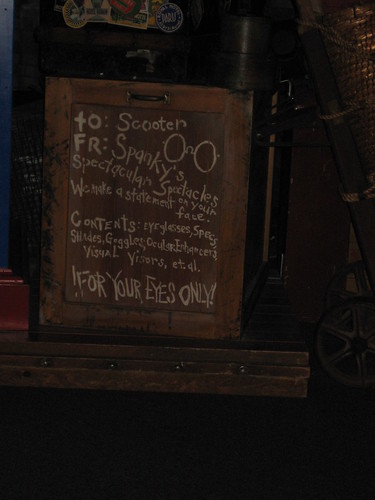 TO: Scooter
FR: Spanky's
Spectacular Spectacles
We make a statement on your
face.
CONTENTS: EYEglasses, Specs,
Shades, Goggles, Ocular Enhancers
Visual Visors, et.al.
!!FOR YOUR EYES ONLY!